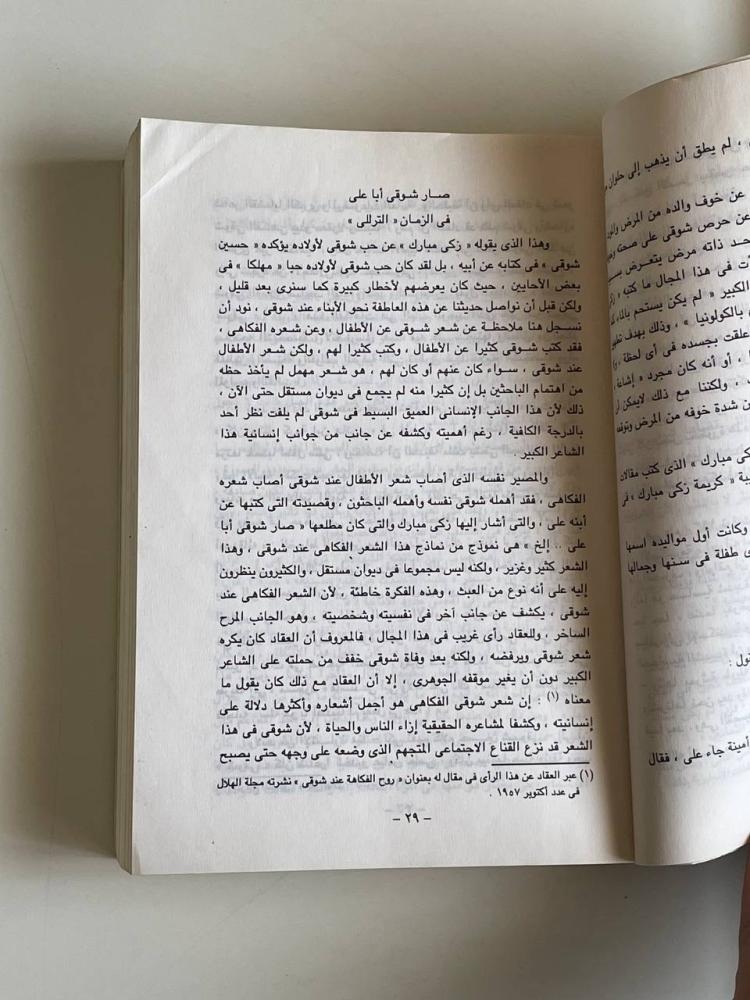 صار شوقى أبا على
فى الزمان « الترللى »
وهذا الذى يقوله « زكى مبارك » عن حب شوقى لأولاده يؤكده « حسين
شوقى » فى كتابه عن أبيه ، بل لقد كان حب شوقى لأولاده حبا « مهلكا » فى
بعض الأحايين ، حيث كان يعرضهم لأخطار كبيرة كما سنرى بعد قليل ،
ولكن قبل أن نواصل حديثنا عن هذه العاطفة نحو الأبناء عند شوقى ، نود أن
نسجل هنا ملاحظة عن شعر شوقى عن الأطفال ، وعن شعره الفكاهى ،
فقد كتب شوقى كثيرا عن الأطفال ، وكتب كثيرا لهم ، ولكن شعر الأطفال
عند شوقى ، سواء كان عنهم أو كان لهم ، هو شعر مهمل لم يأخذ حظه
من اهتمام الباحثين بل إن كثيرا منه لم يجمع فى ديوان مستقل حتى الآن ،
ذلك لأن هذا الجانب الإنسانى العميق البسيط فى شوقى لم يلفت نظر أحد
بالدرجة الكافية ، رغم أهميته وكشفه عن جانب من جوانب إنسانية هذا
الشاعر الكبير .
والمصير نفسه الذى أصاب شعر الأطفال عند شوقى أصاب شعره
الفكاهى ، فقد أهمله شوقى نفسه وأهمله الباحثون ، وقصيدته التى كتبها عن
أبنه على ، والتى أشار إليها زكى مبارك والتى كان مطلعها « صار شوقى أبا
على .. إلخ » هى نموذج من نماذج هذا الشعر الفكاهى عند شوقى ، وهذا
الشعر كثير وغزير ، ولكنه ليس مجموعا فى ديوان مستقل ، والكثيرون ينظرون
إليه على أنه نوع من العبث ، وهذه الفكرة خاطئة ، لأن الشعر الفكاهى عند
شوقى ، يكشف عن جانب آخر فى نفسيته وشخصيته ، وهو الجانب المرح
الساخر ، وللعقاد رأى غريب فى هذا المجال ، فالمعروف أن العقاد كان يكره
شعر شوقى ويرفضه ، ولكنه بعد وفاة شوقى خفف من حملته على الشاعر
الكبير دون أن يغير موقفه الجوهرى ، إلا أن العقاد مع ذلك كان يقول ما
معناه (١) : إن شعر شوقى الفكاهى هو أجمل أشعاره وأكثرها دلالة على
إنسانيته ، وكشفا لمشاعره الحقيقية إزاء الناس والحياة ، لأن شوقى فى هذا
الشعر قد نزع القناع الاجتماعى المتجهم الذى وضعه على وجهه حتى يصبح
(١) عبر العقاد عن هذا الرأى فى مقال له بعنوان « روح الفكاهة عند شوقى » نشرته مجلة الهلال
فى عدد أكتوبر ١٩٥٧ .
– ٢٩ –
، لم يطق أن يذهب إلى حلوان
عن خوف والده من المرض
عن حرص شوقى على صحته
حد ذاته مرض يتعرض
فى هذا المجال ما كتبه «
الكبير « لم يكن يستحم بالماء
بالكولونيا » ، وذلك بهدف
علقت بجسده فى أى لحظة ،
، أو أنه كان مجرد « إشاعة
، ولكننا مع ذلك لايمكن
شدة خوفه من المرض
كى مبارك » الذى كتب مقالات
« كريمة زكى مبارك » فى
وكانت أول مواليده اسمها
طفلة فى سنها وجمالها
قول :
أمينة جاء على ، فقال